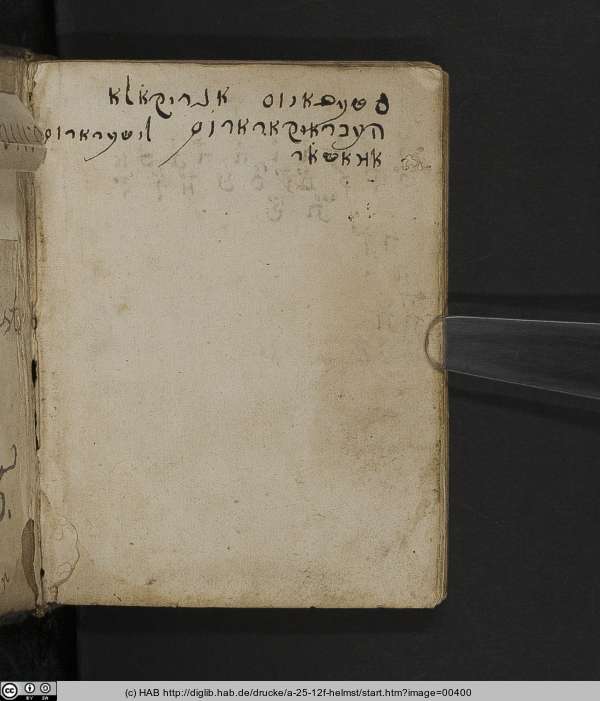 סטעפאנוס אגריקאלא
העבראיקארארום ליטערארום
אמאטאר
(c) HAB http://diglib.hab.de/drucke/a-25-12f-helmst/start.htm?image=00400